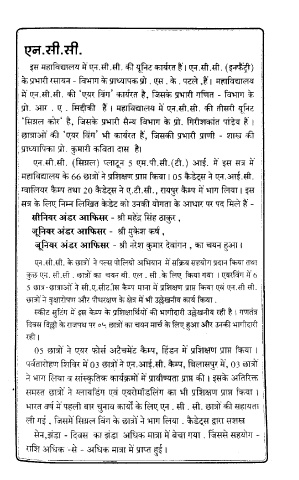 एन.सी.सी.
इस महाविद्यालय में एन.सी.सी. की यूनिट कार्यरत हैं। एन.सी.सी. (इन्फैंट्री)
के प्रभारी रसायन - विभाग के प्राध्यापक प्रो. एस. के. पटले .हैं। महाविद्यालय
में एन.सी.सी. की 'एयर विंग' कार्यरत है, जिसके प्रभारी गणित - विभाग के
प्रो. आर . ए . सिद्दीकी हैं । महाविद्यालय में एन.सी.सी. की तीसरी यूनिट
'सिग्नल कोर' है, जिसके प्रभारी सैन्य विभाग के प्रो. गिरीशकांत पांडेय हैं ।
छात्राओं की 'एयर विंग' भी कार्यरत हैं, जिसकी प्रभारी प्राणी - शास्त्र की
प्राध्यापिका प्रो. कुमारी कविता दास है।
एन.सी.सी. (सिग्नल) प्लाटून 5 एम.पी.सी.(टी.) आई. में इस सत्र में
महाविद्यालय के 66 छात्रों ने प्रशिक्षण प्राप्त किया। 05 कैडेट्स ने एन.आई.सी.
ग्वालियर कैम्प तथा 20 कैडेट्स ने ए.टी.सी., रायपुर कैम्प में भाग लिया। इस
सत्र के लिए निम्न लिखित केडेट को उनकी योगता के आधार पर पद मिले हैं -
सीनियर अंडर आफिसर - श्री महेंद्र सिंह ठाकुर ,
जूनियर अंडर आफिसर - श्री मुकेश वर्ष ,
जूनियर अंडर आफिसर - श्री नरेश कुमार देवांगन , का चयन हुआ।
एन.सी.सी. के छात्रों ने पल्स पोलियो अभियान में सक्रिय सहयोग प्रदान किया तथा
कुछ एन. सी.सी. छात्रों का चयन बी. एल . सी. के लिए किया गया । एयरविंग में 6
छात्र-छात्राओं ने सी.ए.टी.सी. कैम्प माना में प्रशिक्षण प्राप्त किया एवं एन.सी.सी.
छात्रों ने वृक्षारोपण और पौधरक्षण के क्षेत्र में भी उल्लेखनीय कार्य किया .
स्कीट सुटिंग में इस कैम्प के प्रशिक्षार्थियों की भागीदारी उल्लेखनीय रही है । गणतंत्र
दिवस दिल्ली के राजपथ पर ०५ छात्रों का चयन मार्च के लिए हुआ और उनकी भागीदारी
रही।
05 छात्रों ने एयर फोर्स अटैचमेंट कैम्प, हिंडन में प्रशिक्षण प्राप्त किया ।
पर्वतारोहण शिविर में 03 छात्रों ने एन.आई.सी. कैम्प, बिलासपुर में, 03 छात्रों
ने भाग लिया व सांस्कृतिक कार्यक्रमों में प्रावीण्यता प्राप्त की । इसके अतिरिक्त
समस्त छात्रों ने ग्लाइडिंग एवं एयरोमॉडलिंग का भी प्रशिक्षण प्राप्त किया ।
भारत वर्ष में पहली वार चुनाव कार्यों के लिए एन . सी . सी. छात्रों की सहायता
ली गई , जिसमें सिग्नल विंग के छात्रों ने भाग लिया . कैडेट्स द्वारा सशस्त्र
सेन.झंडा - दिवस का झंडा अधिक मात्रा में बेचा गया . जिससे सहयोग -
राशि अधिक -से - अधिक मात्रा में प्राप्त हुई।